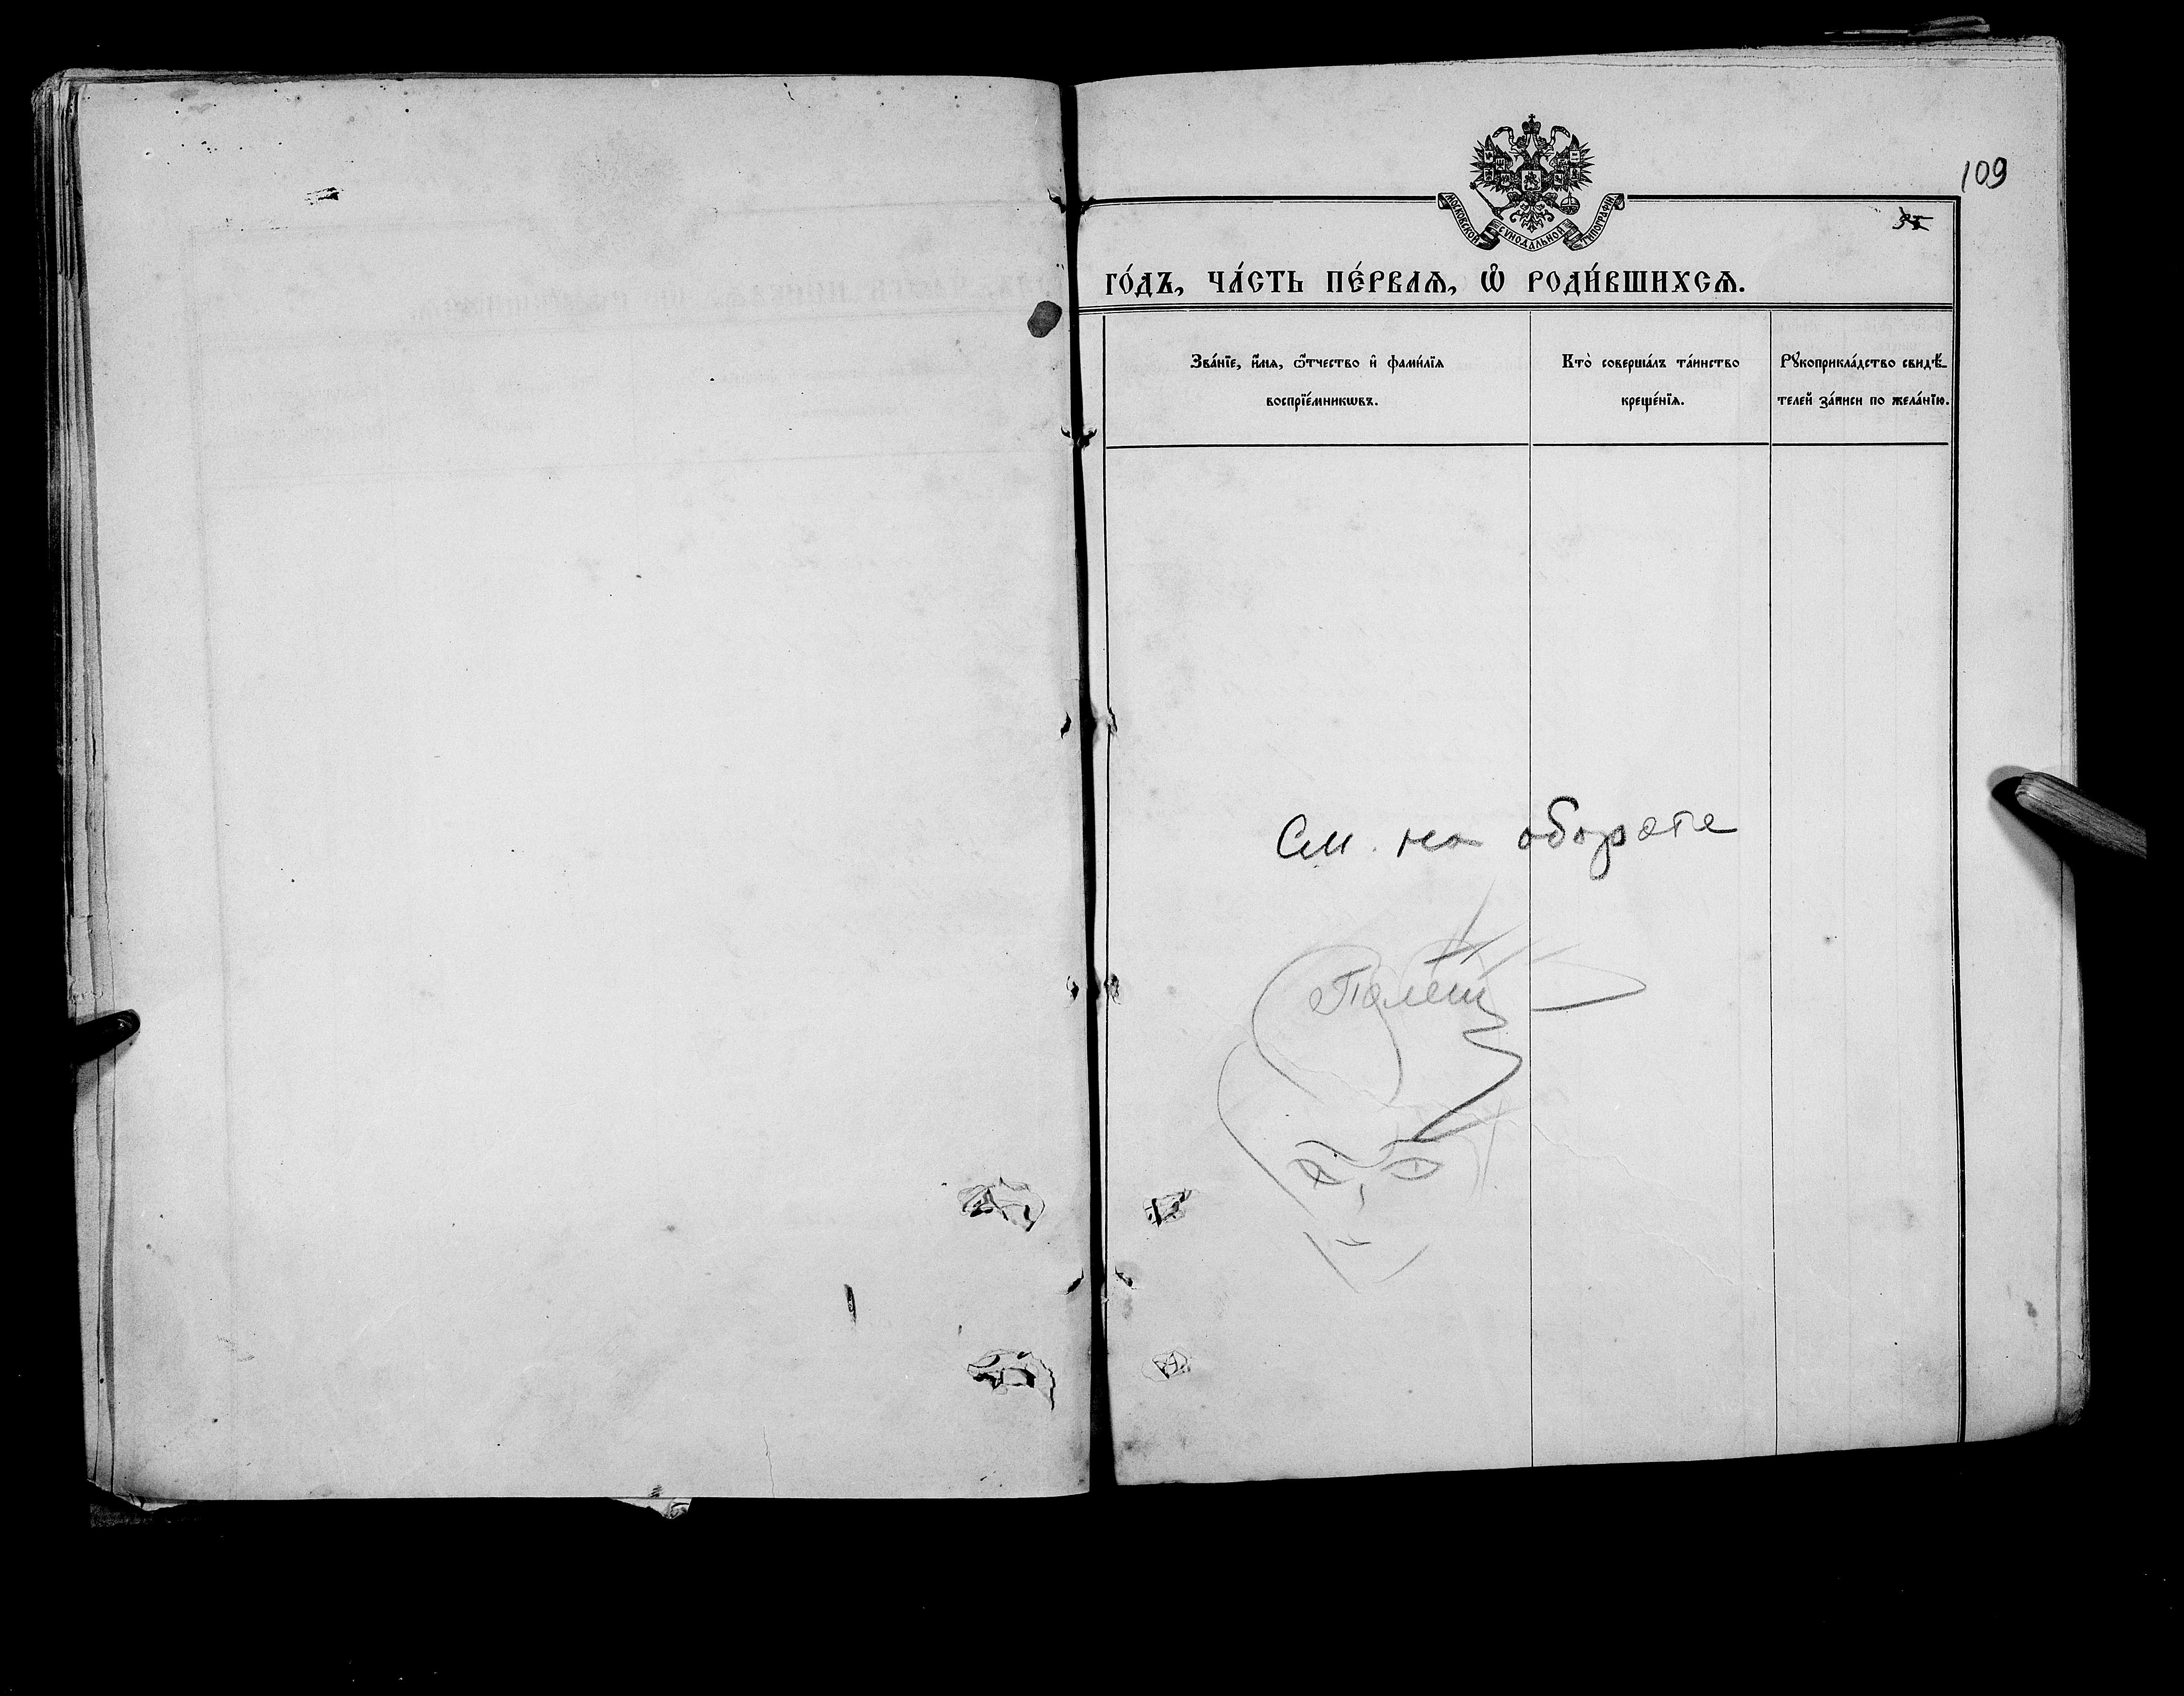 109
МОСКОВСКОЙ СѴНОДАЛЬНОЙ ТИПОГРАФІИ
го́дъ, ча́сть пе́рваѧ, ѡ҆ роди́вшихсѧ.
Зва́нїе, и҆́мѧ, ѻ҆́тчество и҆ фами́лїѧ
воспрїе́мникѡвъ.
Кто̀ соверша́лъ та́инство
креще́нїѧ.
Рꙋкоприкла́дство свидѣ́-
телей за́писи по жела́нїю.
См. на обороте